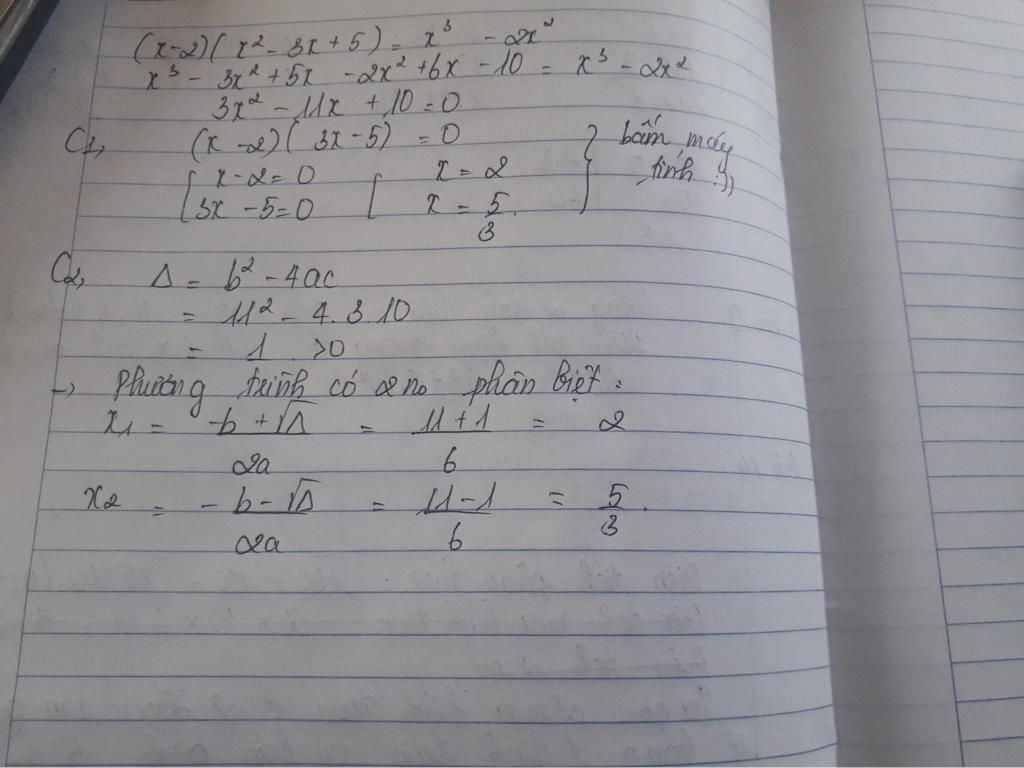 (x-2)(x² - 3x + 5) = x³ - 2x²
x³ - 3x² + 5x - 2x² + 6x - 10 = x³ - 2x²
3x² - 11x + 10 = 0
C1, (x - 2)(3x - 5) = 0
[ x - 2 = 0 [ x = 2
3x - 5 = 0 x = 5/3.
} bấm máy
tính :))
C2, Δ = b² - 4ac
= 11² - 4.3.10
= 1 >0
→ Phương trình có 2 no phân biệt:
x1 = -b + √Δ / 2a = 11 + 1 / 6 = 2
x2 = -b - √Δ / 2a = 11 - 1 / 6 = 5/3.